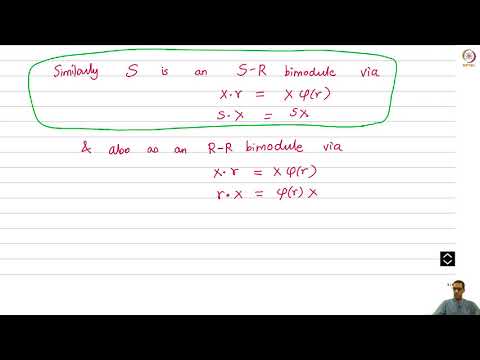 Similarly S is an S-R bimodule via
x·r = x φ(r)
s·x = sx
& also as an R-R bimodule via
x·r = x φ(r)
r·x = φ(r) x